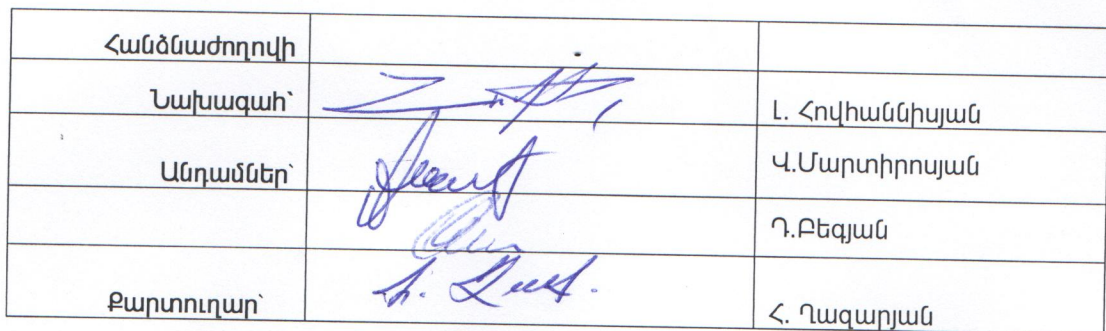 Հանձնաժողովի
Նախագահ՝ Լ. Հովհաննիսյան
Անդամներ՝ Վ.Մարտիրոսյան
Դ.Բեգյան
Քարտուղար՝ Հ. Ղազարյան